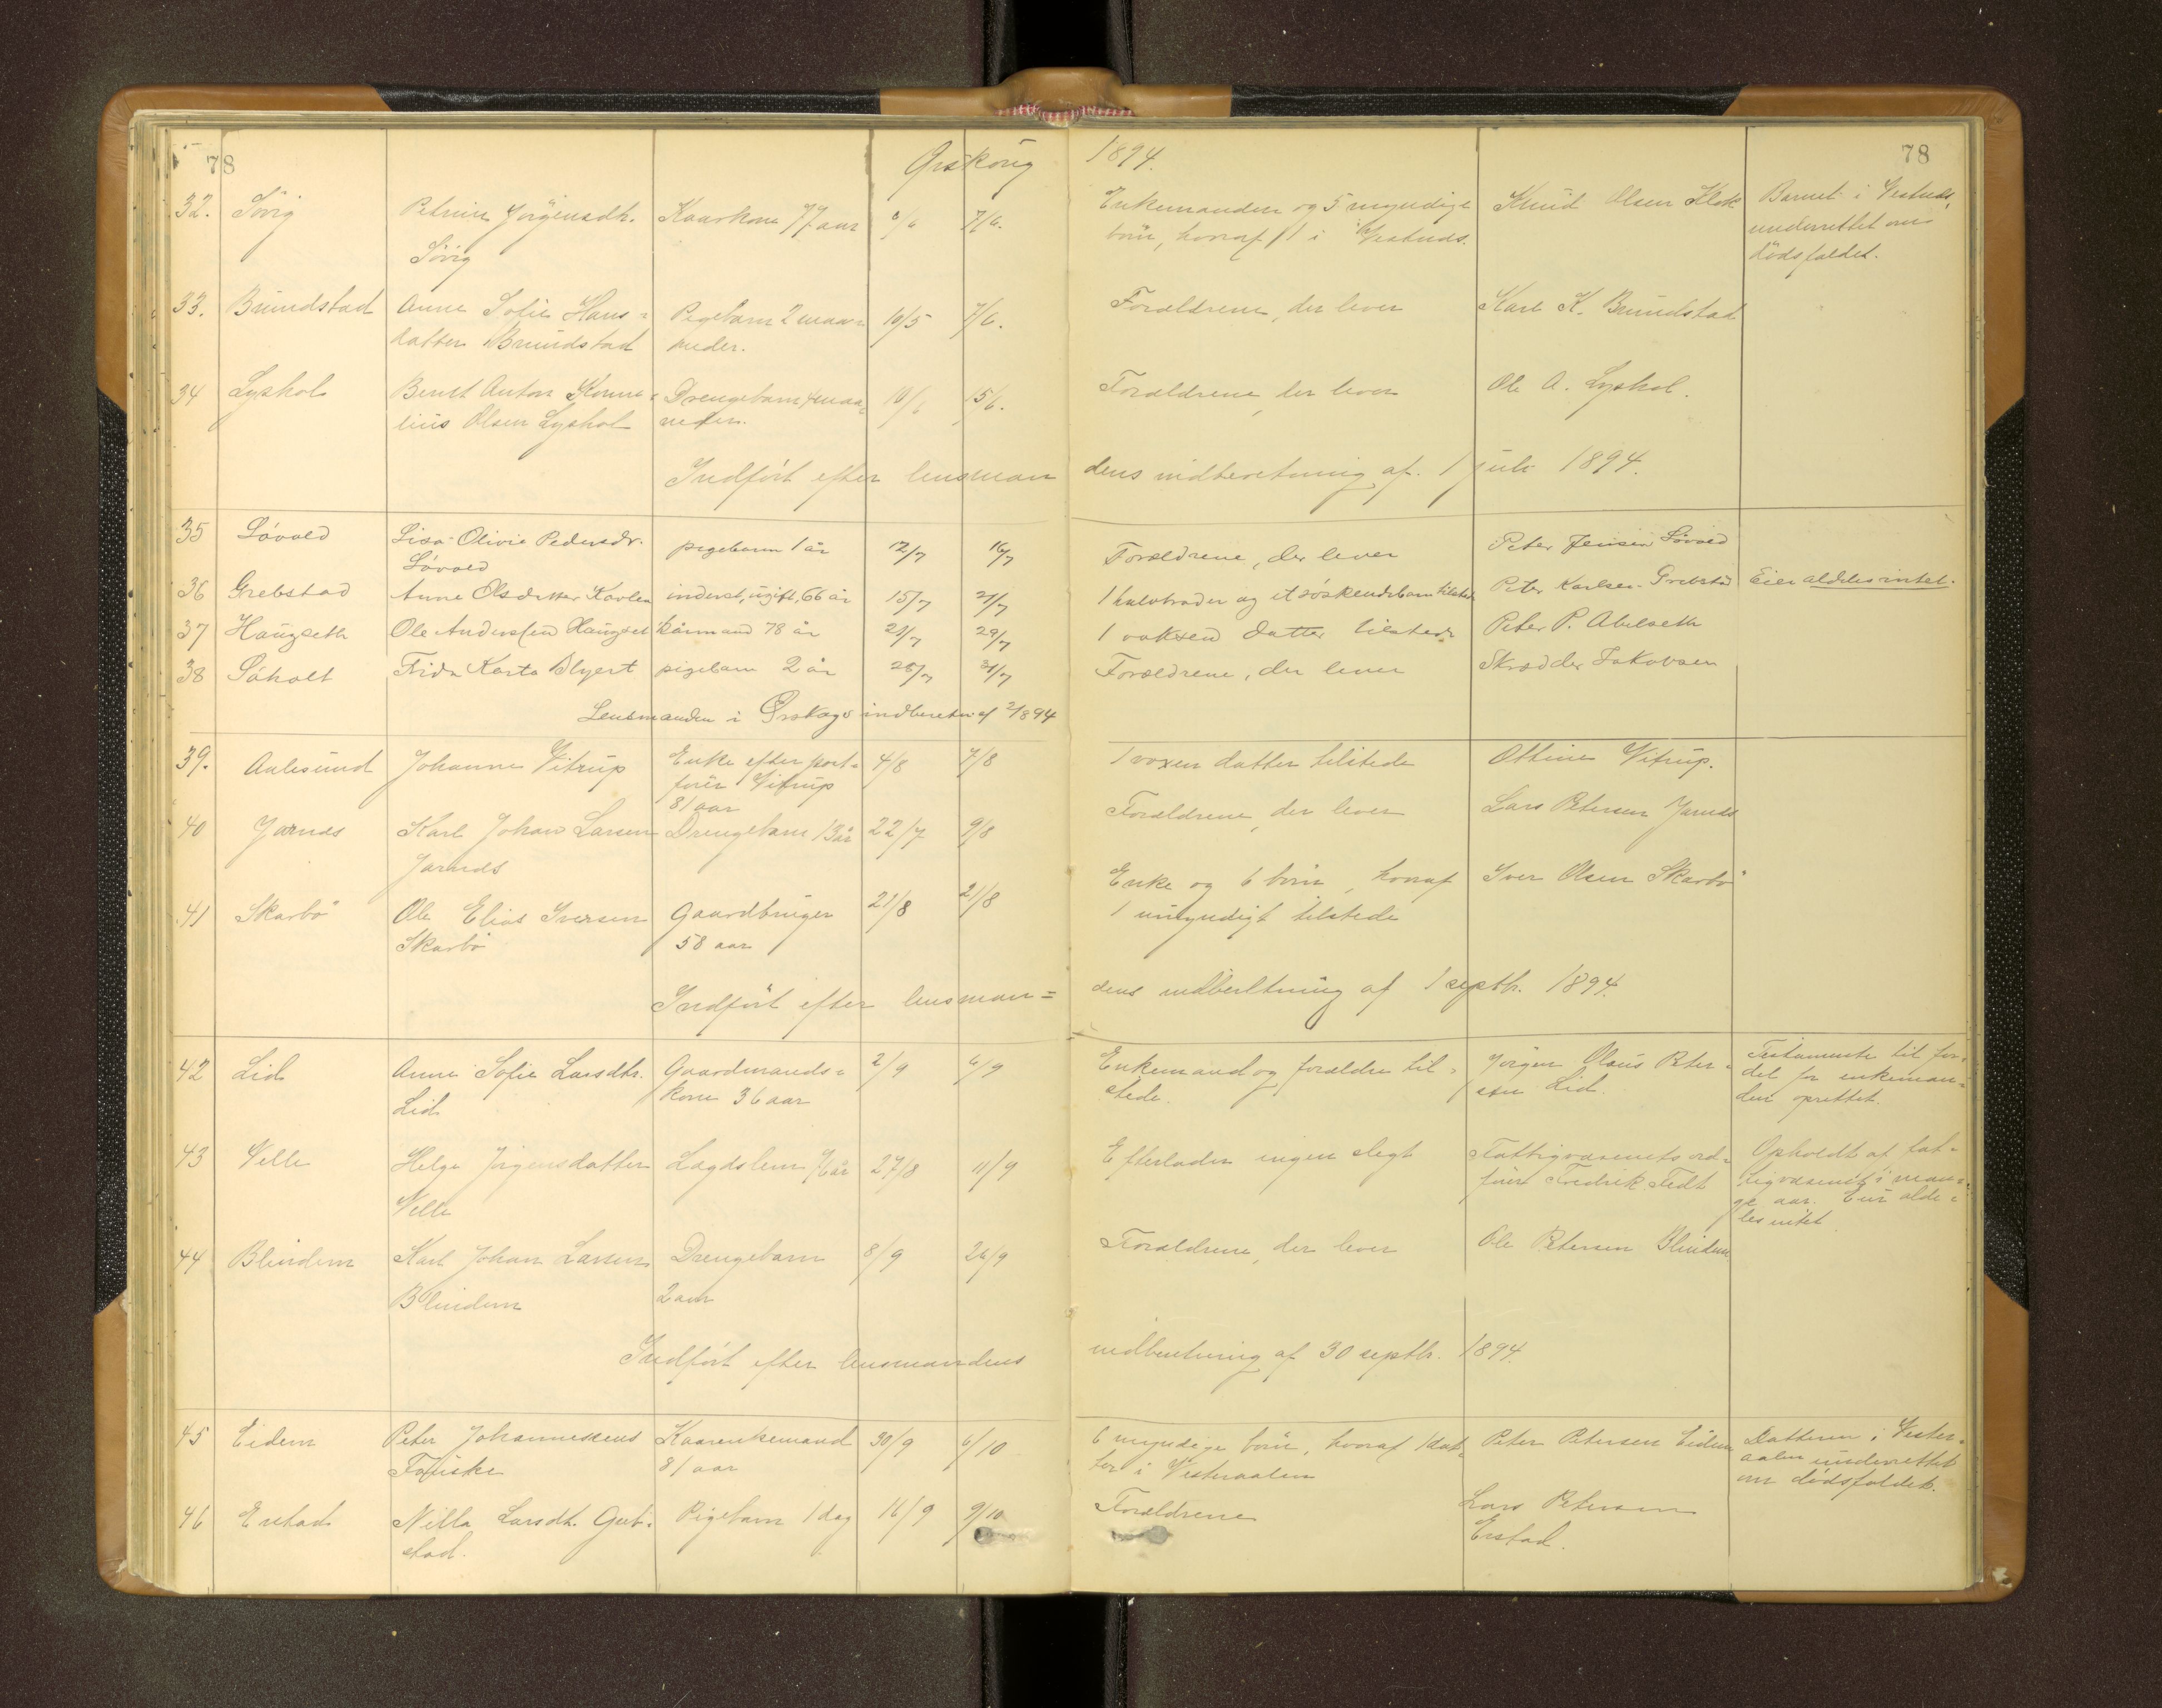 78
Ørskoug 1894.
78
32. Søvig Petrine Jørgensdtr. Kaarkone 77 aar 7/6. Enkemanden og 5 myndige Knud Olsen Klok Barnet i Vestuds,
Søvig børn, hvoraf 1 i Vestuds. underrettet om
dødsfaldet.
33. Brundstad Anne Sofie Hans= Pigebarn 2 maa= 10/5 7/6. Forældrene, der lever Karl K. Brundstad
datter Brundstad neder.
34 Lyshol Bernt Anton Korne= Drengebarn maa= 10/6 15/6. Forældrene, der lever Ole A. Lyshol.
lius Olsen Lyshol neder.
Indført efter lensmandens indberetning af 1 juli 1894.
35 Løvold Lisa Olivie Pedersdr. pigebarn 1 år 12/7 16/7 Forældrene, der lever Peter Jensen Løvold
Løvold
36 Grebstad Anne Olsdatter inderst, ugift, 66 år 15/7 21/7 1 halvbroder og et søskendebarn tilstede Peter Karlsen Grebstad Eier aldeles intet.
37 Haugseth Ole Andersen Haugset kårmand 78 år 21/7 29/7 1 voksen datter tilstede Peter P. Abelseth
38 Søholt Frida Karta pigebarn 2 år 28/7 31/7 Forældrene, der lever Skrædder Jakobsen
Lensmanden i Ørskogs indberetn. af 2/8 94
39. Aalesund Johanne Vitrup Enke efter port= 4/8 7/8 1 voxen datter tilstede Ottine Vitrup.
fører Vitrup
81 aar
40 Jarnæs Karl Johan Larsen Drengebarn 13 år 22/7 9/8 Forældrene, der lever Lars Petersen Jarnæs
Jarnæs
41 Skarbø Ole Elias Iversen Gaardbruger 21/8 21/8 Enke og 6 børn, hvoraf Iver Olsen Skarbø
Skarbø 58 aar 1 umyndigt tilstede
Indført efter lensman= dens indberetning af 1 septbr. 1894.
42 Lid Anne Sofie Larsdtr. Gaardmands= 2/9 6/9 Enkemand og forældre til= Jørgen Olaus Peter= Testamente til for=
Lid kone 36 aar stede. sen Lid. del for enkeman=
den oprettet.
43 Velle Helge Jørgensdatter Lægdslem 27/8 11/9 Efterlader ingen slegt Fattigvæsenets ord= Opholdt af fat=
Velle fører Fredrik Tedt tigvæsenet i man=
ge aar. Eier alde=
les intet
44 Blindem Karl Johan Larsen Drengebarn 8/9 26/9 Forældrene, der lever Ole Petersen Blindem
Blindem 2 aar
Indført efter lensmandens indberetning af 30 septbr. 1894.
45 Eidem Peter Johannessens Kaarenkemand 30/9 6/10 6 myndige børn, hvoraf 1 dat= Peter Petersen Eidem Datteren i Vester=
Fauske 81 aar ter i Vesteraalen aalen underrettet
om dødsfaldet.
46 Erstad Nilla Larsdt. Greb= Pigebarn 1 dag 16/9 9/10 Forældrene Lars Petersen
stad. Erstad.